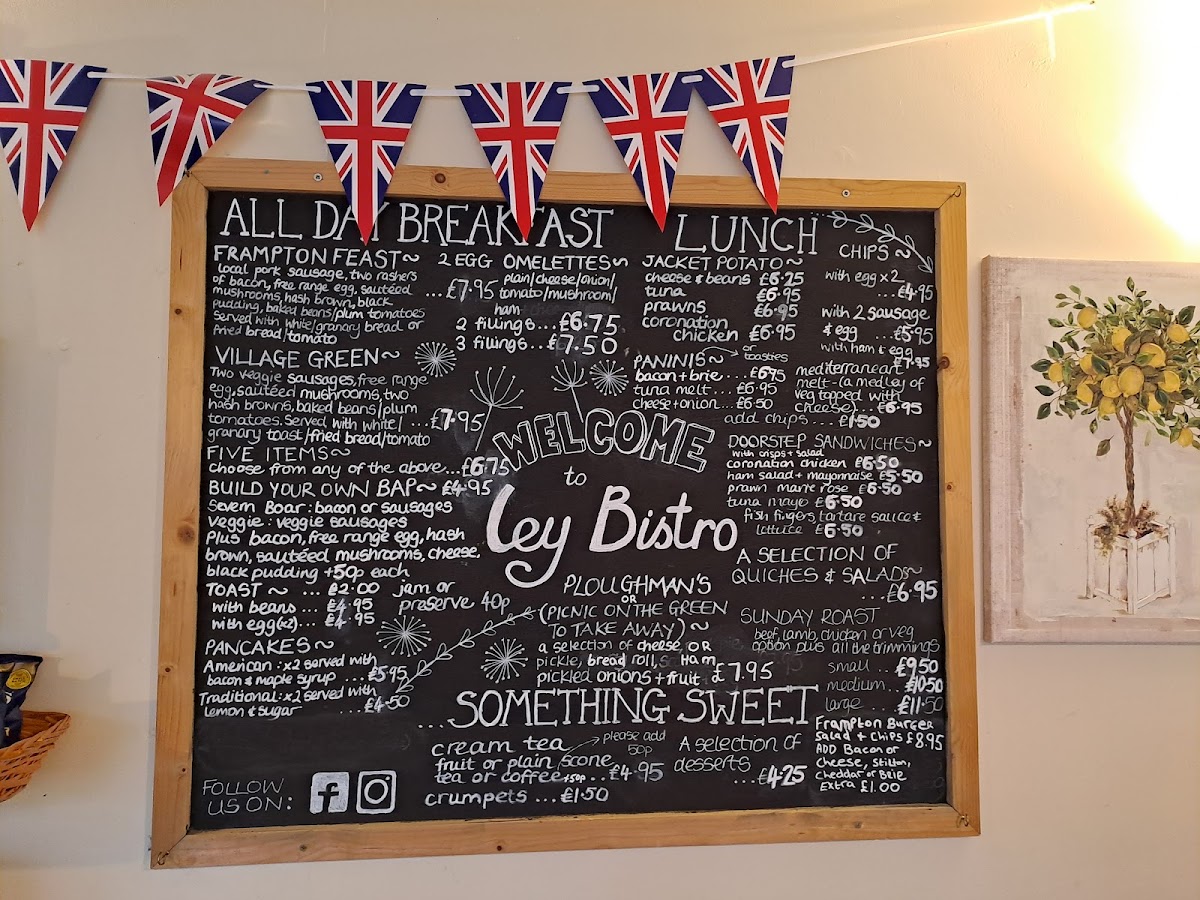 ALL DAY BREAKFAST
FRAMPTON FEAST~
local pork sausage, two rashers
of bacon, free range egg, sautéed
mushrooms, hash brown, black
pudding, baked beans/plum tomatoes
served with white/granary bread or
fried bread/tomato
...£7.95
2 EGG OMELETTES~
plain/cheese/onion/
tomato/mushroom/
ham
2 fillings...£6.75
3 fillings...£7.50
VILLAGE GREEN~
Two veggie sausages, free range
egg, sautéed mushrooms, two
hash browns, baked beans/plum
tomatoes. Served with white/
granary toast/fried bread/tomato
...£7.95
FIVE ITEMS~
Choose from any of the above...£6.75
BUILD YOUR OWN BAP~ £4.95
Severn Boar: bacon or sausages
Veggie: veggie sausages
Plus bacon, free range egg, hash
brown, sautéed mushrooms, cheese,
black pudding +50p each
TOAST~ ... £2.00 jam or
preserve 40p
with beans ... £4.95
with egg (x2)... £4.95
PANCAKES~
American: x2 served with
bacon & maple syrup ...£5.95
Traditional: x2 served with
lemon & sugar ...£4.50
FOLLOW
US ON:
f
WELCOME
to
Ley Bistro
PLOUGHMAN'S
OR
(PICNIC ON THE GREEN
TO TAKE AWAY)~
a selection of cheese OR
pickle, bread roll, Ham
pickled onions + fruit £7.95
LUNCH
JACKET POTATO~
cheese & beans £6.25
tuna £6.95
prawns £6.95
coronation
chicken £6.95
PANINIS~ or
toasties
bacon + brie...£6.95
tuna melt...£6.95
cheese + onion...£6.50
mediterranean
melt-(a medley of
veg topped with
cheese)...£6.95
add chips...£1.50
CHIPS~
with egg x2
...£4.95
with 2 sausage
& egg ...£5.95
with ham & egg
£7.95
DOORSTEP SANDWICHES~
with crisps + salad
coronation chicken £6.50
ham salad + mayonnaise £5.50
prawn marie rose £6.50
tuna mayo £6.50
fish fingers, tartare sauce &
lettuce £6.50
A SELECTION OF
QUICHES & SALADS~
...£6.95
SUNDAY ROAST
beef, lamb, chicken or veg
option plus all the trimmings
small ... £9.50
medium ... £10.50
large ... £11.50
...SOMETHING SWEET
cream tea
fruit or plain scone
tea or coffee +50p ...£4.95
please add
50p
crumpets ...£1.50
A selection of
desserts
...£4.25
Frampton Burger
Salad + Chips £8.95
ADD Bacon or
Cheese, Stilton,
Cheddar or Brie
Extra £1.00